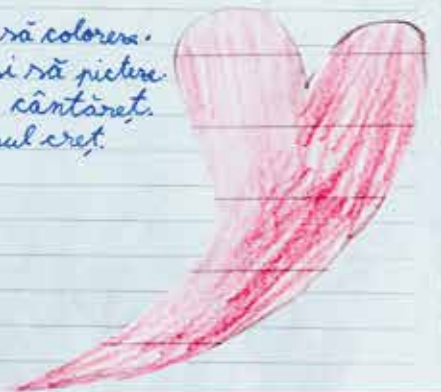 să colorere.
și să pictere.
cântăreț.
ul creț.